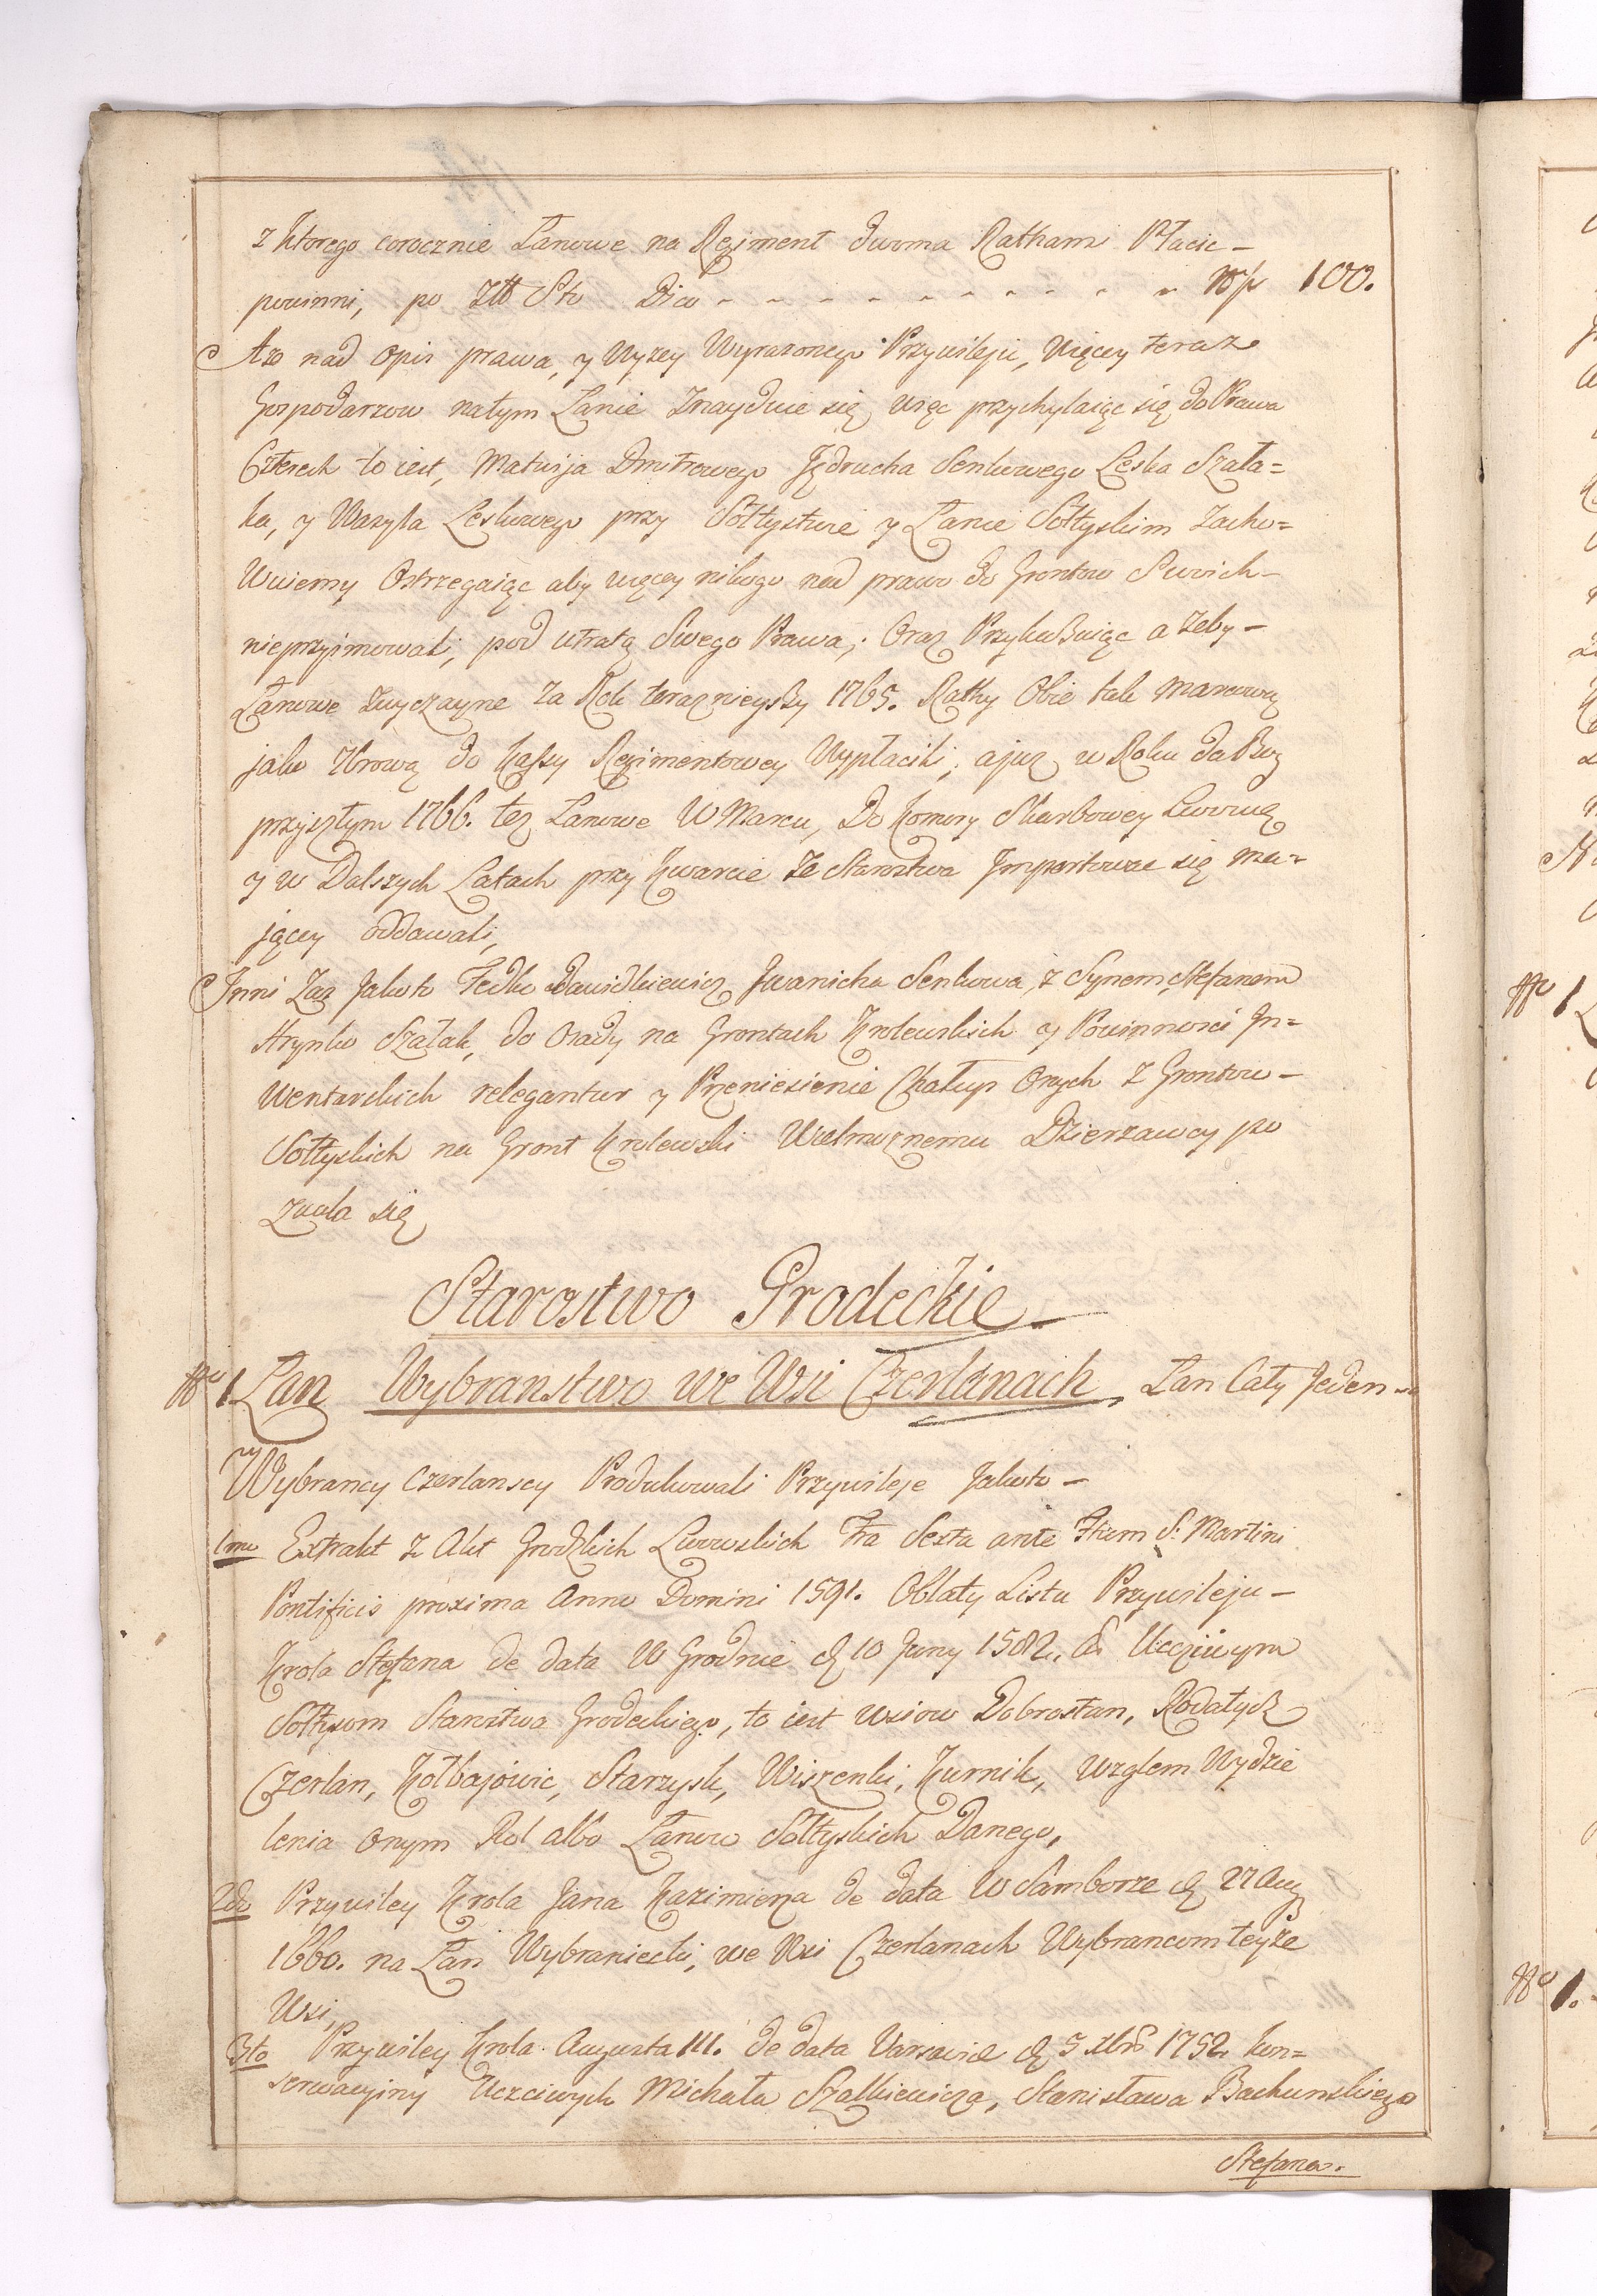 z ktorego corocznie Łanowe na Regiment dwoma Rathami Płacic –
powinni, po Złł Sto Dico - - - - - - - - - - - 100.
Aże nad opis prawa, y Wyzey Wyrazonego Przywileju, Więcey teraz
Gospodarzow natym Łanie Znayduie się, więc przychylaiąc się do Prawa
Czterech to iest, Matwija Dmitrowego Jędrucha Senkowego Leśka Szała=
ka, y Wasyla Leskowego przy Sołtystwie y Łanie Sołtyskim Zacho=
Wuiemy Ostrzegaiąc aby więcey nikogo nad prawo do Grontow Swoich –
nieprzyimowali, pod utratą Swego Prawa; Oraz Przykazuiąc a Zeby –
Łanowe Zwyczayne Za Rok teraznieyszy 1765. Rathy Obie tak Marcową
jako 7brową do Kassy Regimentowey Wypłacili; ajuz w Roku da Bug
przyszłym 1766. tez Łanowe W Marcu, Do Komory Skarbowey Lwowsk
y w Dalszych Latach przy Kwarcie Ze Starostwa Importowac się ma=
jącey oddawali,
Inni Zas Jakoto Fedko Dawidkiewicz, Iwanicha Senkowa, z Synem, Stefanem
Hrynko Szałak, do Osady na Grontach Krolewskich y Powinnosci In=
Wentarskich relegantur y Przeniesienie Chałup Onych Z Grontow –
Sołtyskich na Gront Krolewski Wielmoznemu Dzierzawcy po
zwala się
Starostwo Grodeckie –
Nro 1. Łan Wybranstwo we Wsi Czerlanach, Łan Cały Jeden –
Wybrancy Czerlanscy Produkowali Przywileje Jakoto –
1mo Extrakt Z Akt Grodzkich Lwowskich Fra Sexta ante Ftum S. Martini
Pontificis proxima Anno Domini 1591. Oblaty Listu Przywileju –
Krola Stefana de data W Grodnie d 10 Juny 1582. Uczciwym
Sołtysom Starostwa Grodeckiego, to iest Wsiow Dobrostan, Rodatycz
Czerlan, Kołbajowic, Starzysk, Wiszenki, Kurnik, Wzglem Wydzie
lenia Onym Rol albo Łanow Sołtyskich Danego,
2do Przywiley Krola Jana Kazimierza de data W Samborze d 27 Aug
1660. na Łan Wybraniecki, we Wsi Czerlanach Wybrancom teyże
Wsi,
3tio Przywiley Krola Augusta III. de data Varsaviæ d 5 xbris 1752 kon=
serwacyiny Uczciwych Michała Szałkiewicza, Stanisława Bachumskiego
Stefana.